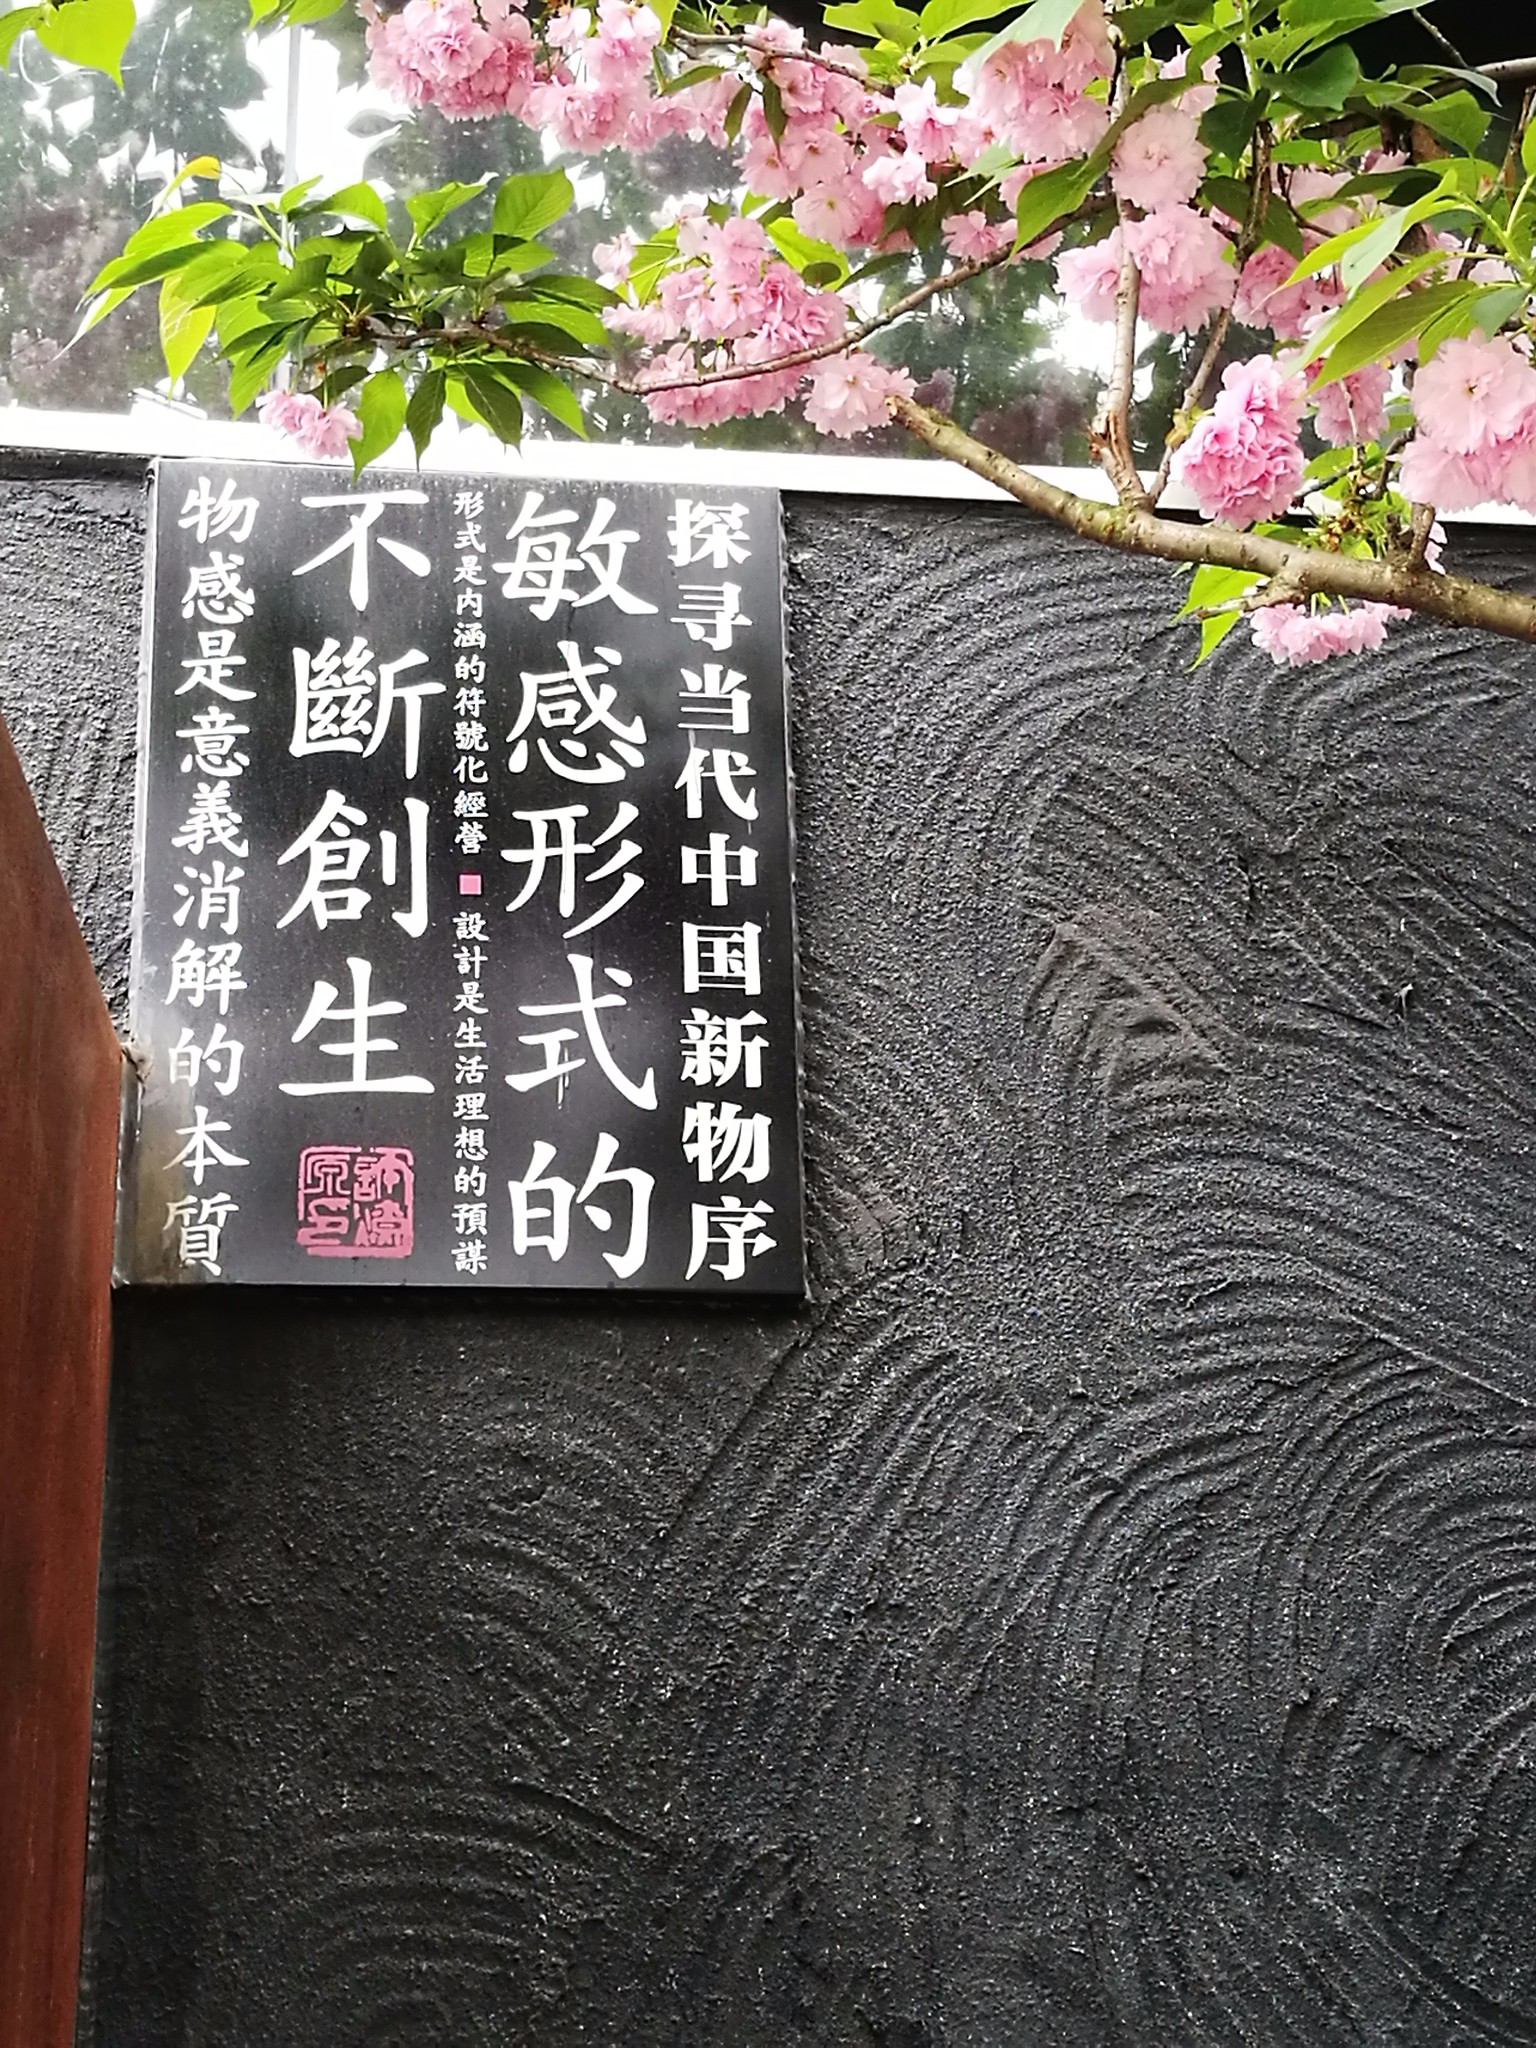 探寻当代中国新物序
敏感形式的
形式是内涵的符號化經營 ■ 設計是生活理想的預謀
不斷創生
物感是意義消解的本質